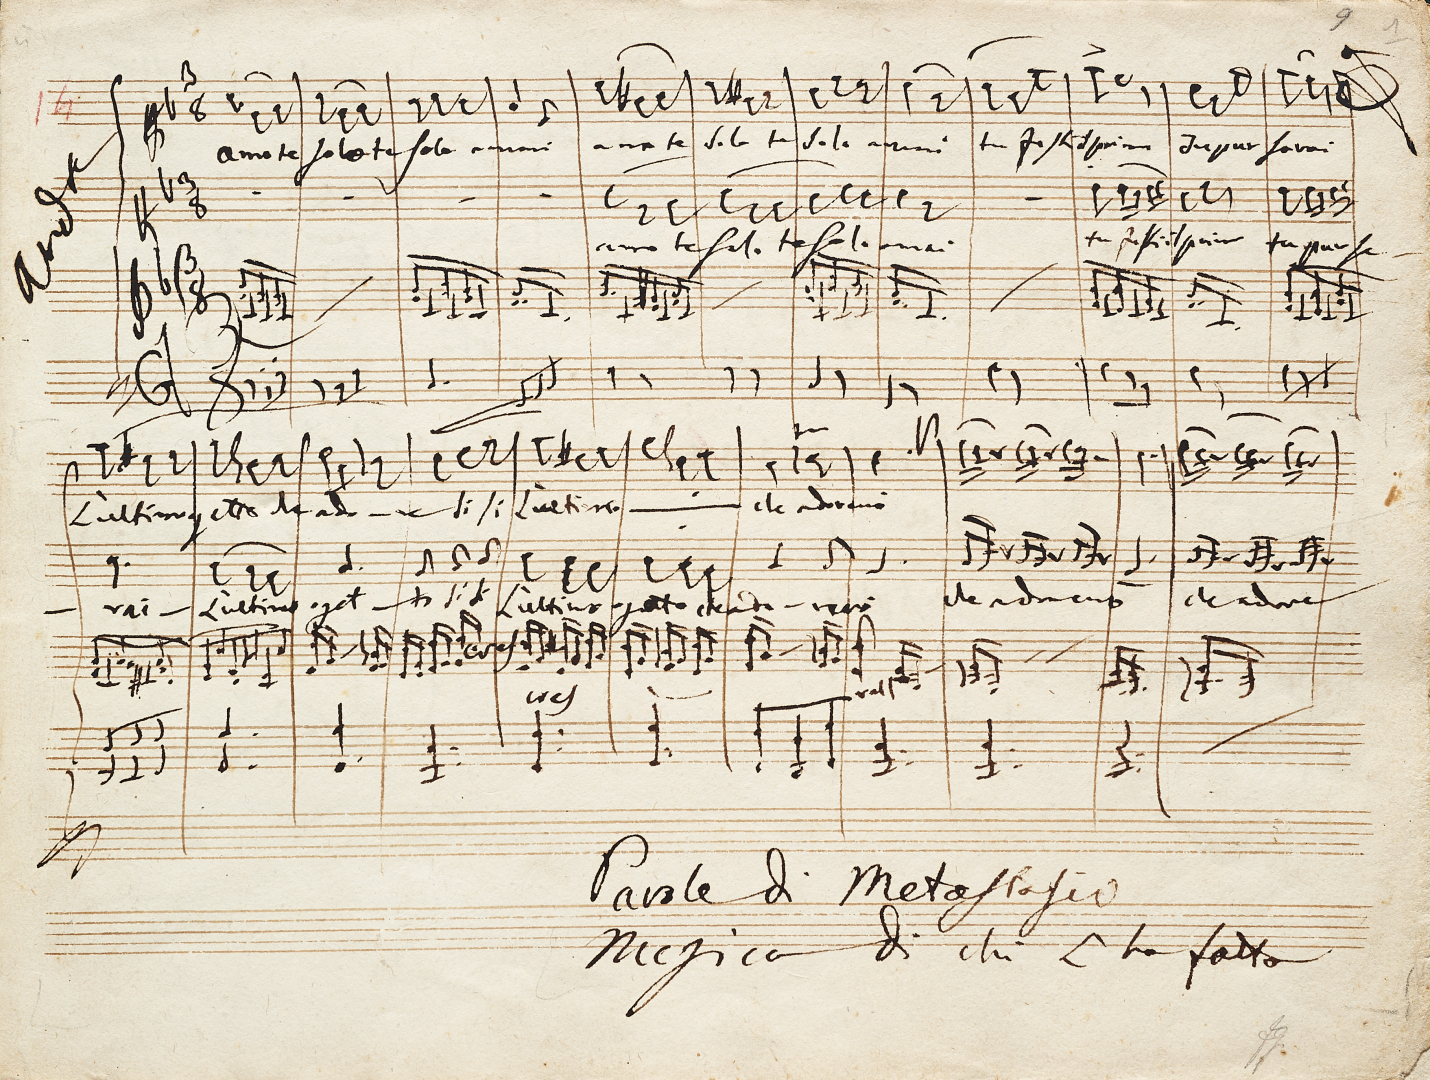 9 1
14
And.te
amo te solo te solo amai amo te solo te solo amai tu fosti il primo tu pur sarai
amo te solo te solo amai tu fosti il primo tu pur sa
L'ultimo ogetto che ado si si L'ultimo che adorerò
rai L'ultimo ogget to si si L'ultimo ogetto che ado rerò che adorerò che adore
cres
cres
rall
Parole di Metastasio
Musica di chi L'ha fatta